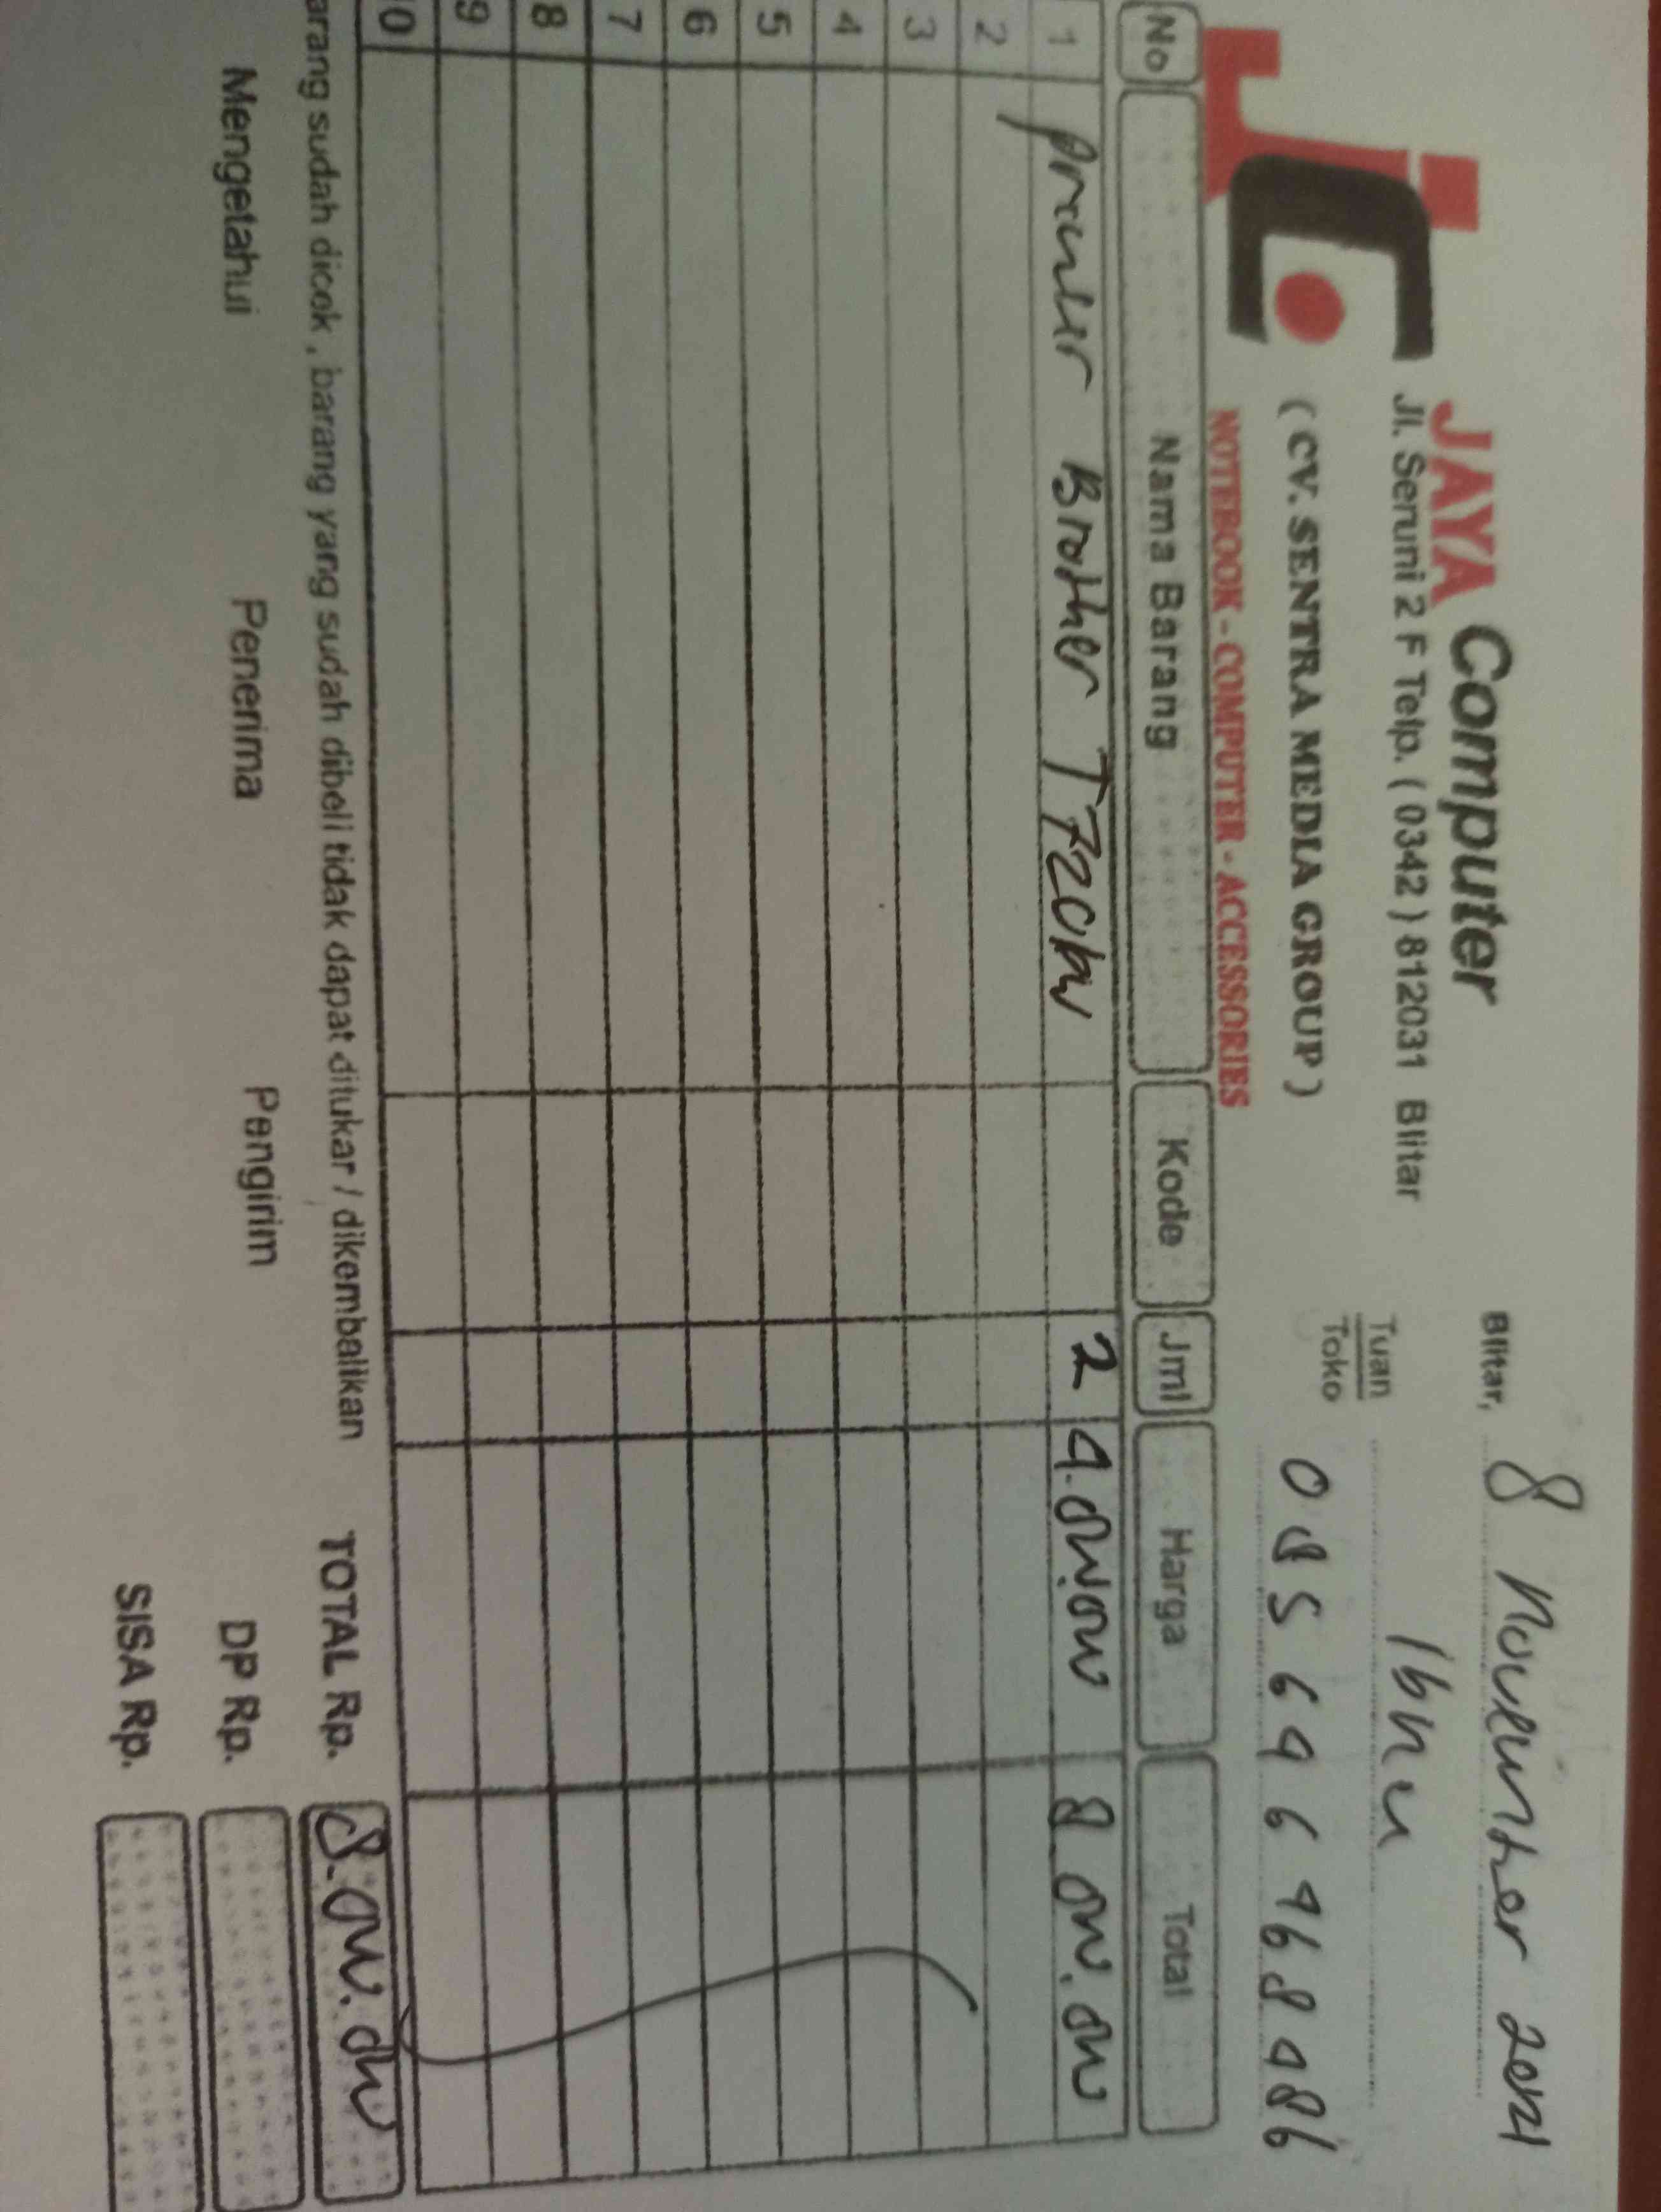 JC
JAYA Computer
Jl. Seruni 2 F Telp. ( 0342 ) 812031 Blitar
( CV. SENTRA MEDIA GROUP )
NOTEBOOK - COMPUTER - ACCESSORIES
Blitar, 8 November 2021
Tuan
Toko
Ibnu
No Nama Barang Kode Jml Harga Total
1 Printer Brother T720DW 2 4.000.000 8.000.000
2
3
4
5
6
7
8
9
0
arang sudah dicek , barang yang sudah dibeli tidak dapat ditukar / dikembalikan
TOTAL Rp. 8.000.000
Mengetahui Penerima Pengirim
DP Rp.
SISA Rp.